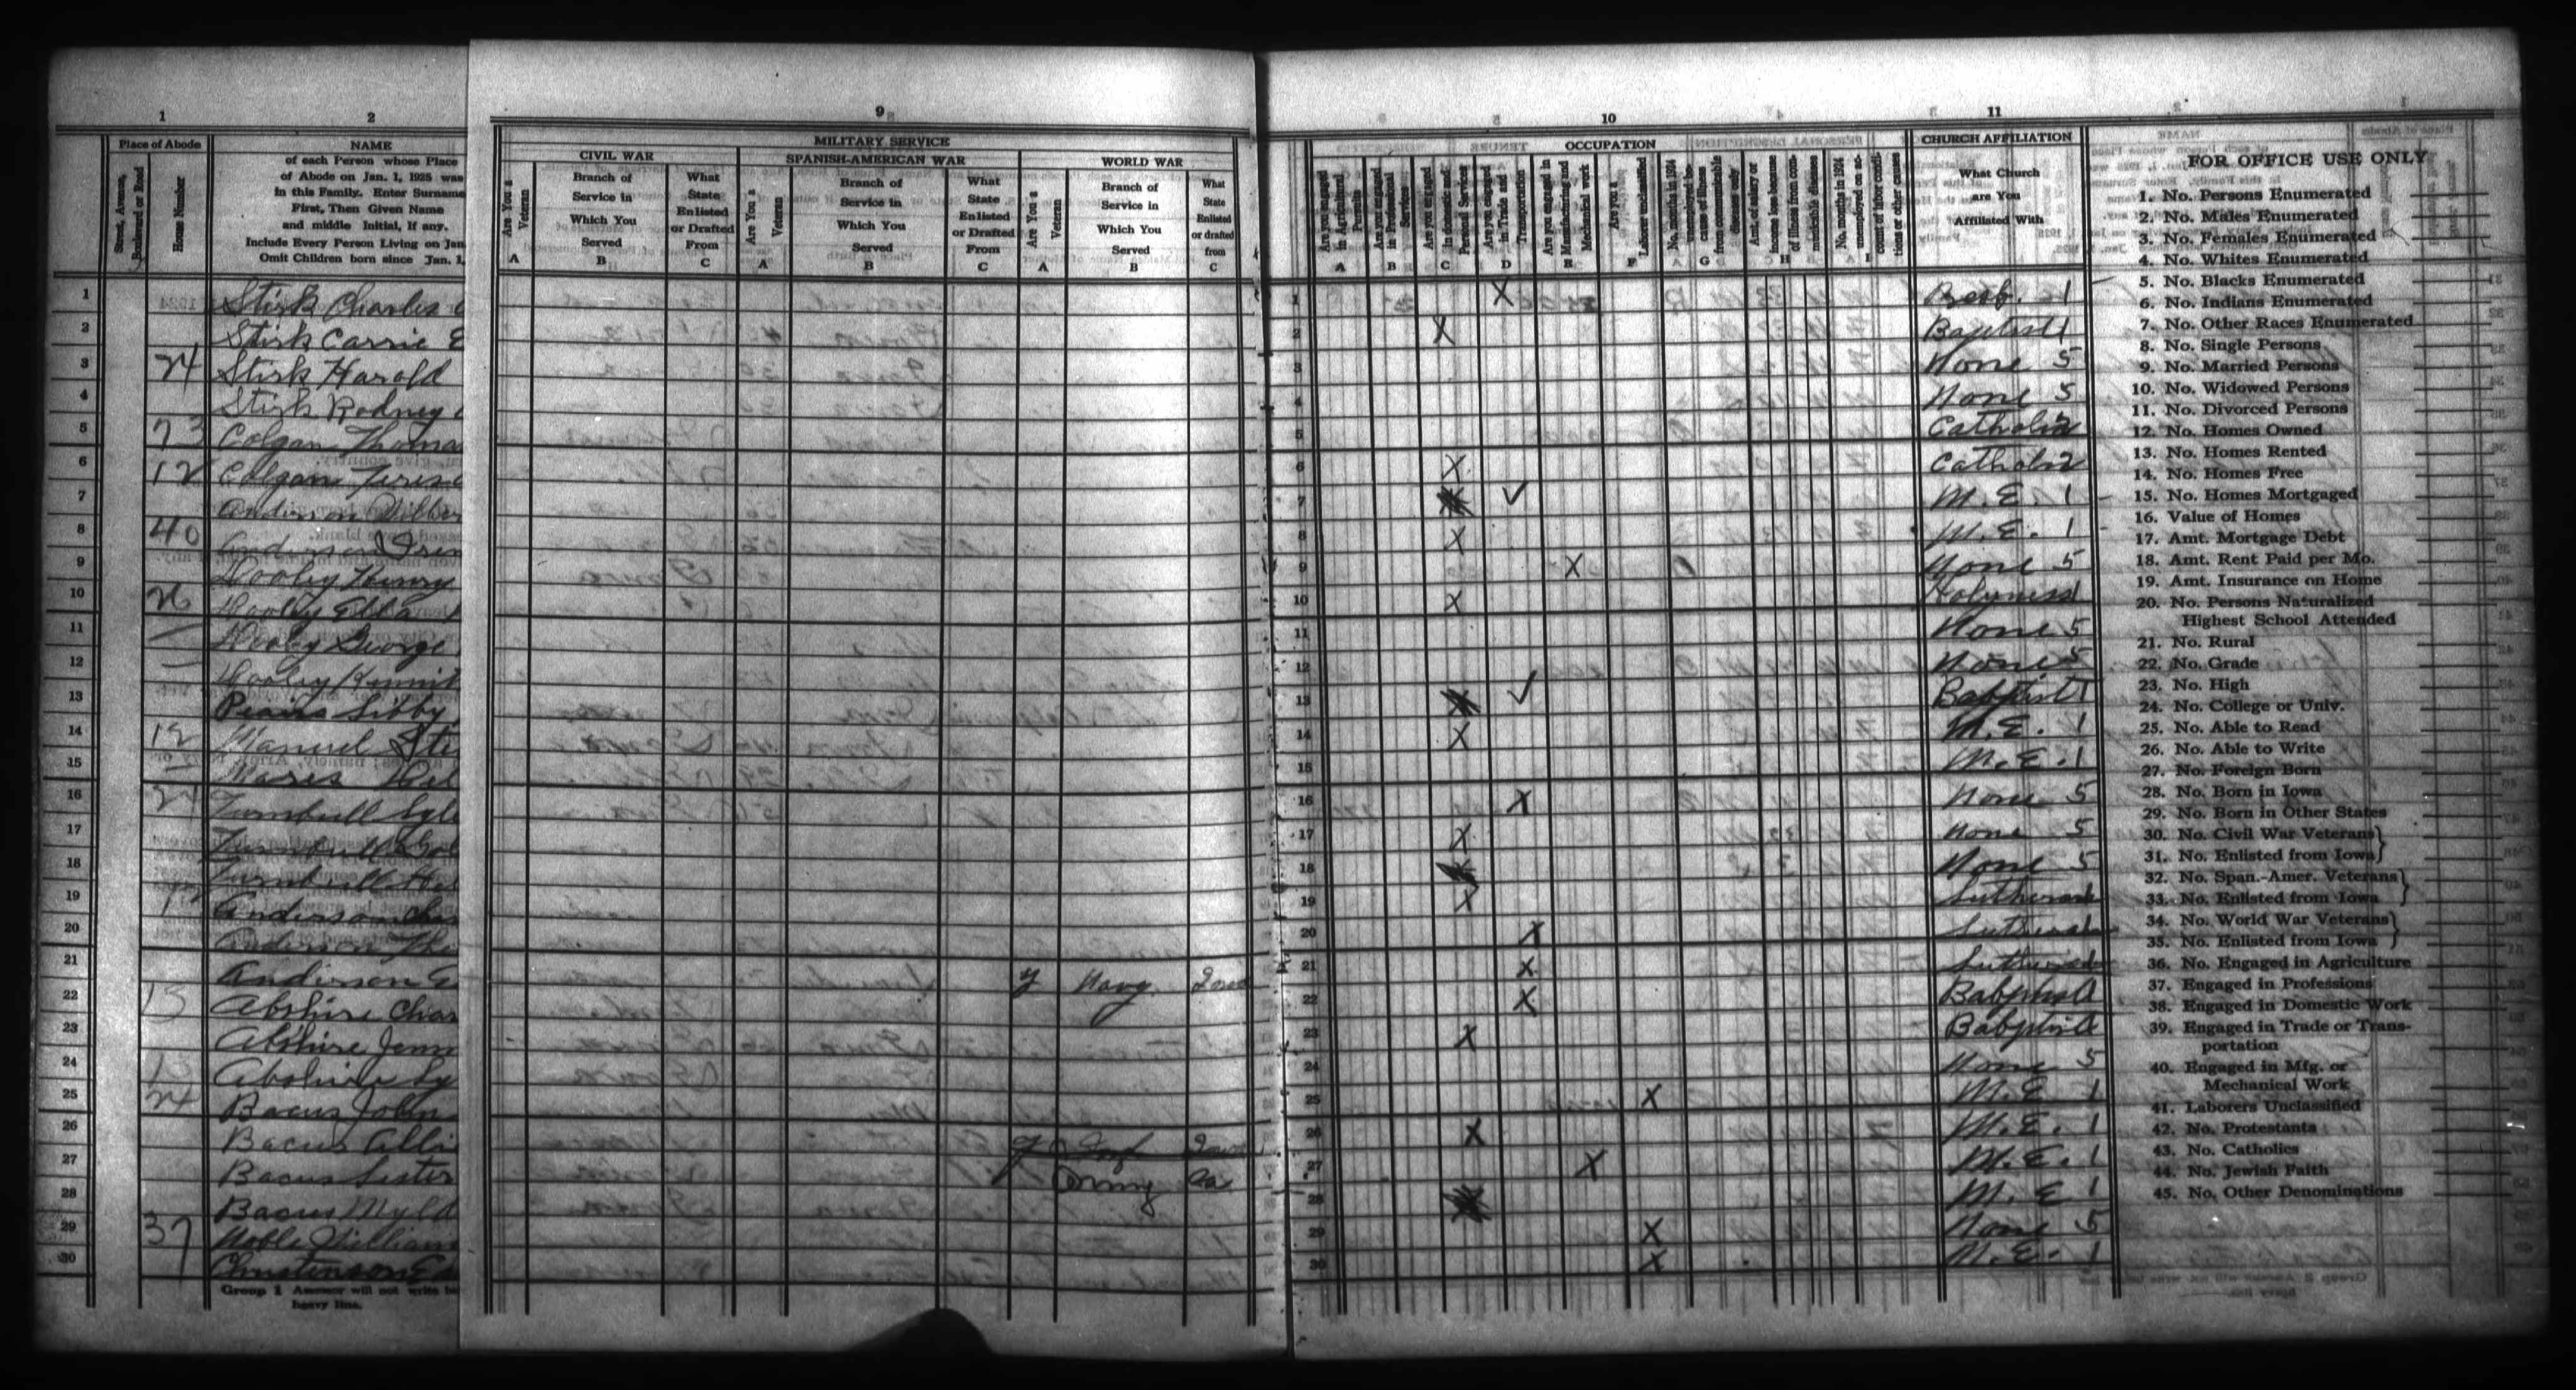 1 2 9 10 11
Place of Abode
Street, Avenue, Boulevard or Road
House Number
NAME
of each Person whose Place
of Abode on Jan. 1, 1925 was
in this Family. Enter Surname
First, Then Given Name
and middle Initial, if any.
Include Every Person Living on Jan.
Omit Children born since Jan. 1,
MILITARY SERVICE
CIVIL WAR
SPANISH-AMERICAN WAR
WORLD WAR
Are You a Veteran
A
Branch of Service in Which You Served
B
What State Enlisted or Drafted From
C
Are You a Veteran
A
Branch of Service in Which You Served
B
What State Enlisted or Drafted From
C
Are You a Veteran
A
Branch of Service in Which You Served
B
What State Enlisted or drafted from
C
OCCUPATION
Are you engaged in Agricultural Pursuits
A
Are you engaged in Professional Services
B
Are you engaged In domestic and Personal Services
C
Are you engaged in Trade and Transportation
D
Are you engaged in Manufacturing and Mechanical work
E
Are you a Laborer unclassified
F
No. months in 1924 unemployed because of illness from communicable diseases only
G
Amt. of salary or income loss because of illness from communicable diseases
H
No. months in 1924 unemployed on account of labor conditions or other causes
I
CHURCH AFFILIATION
What Church
are You
Affiliated With
1 Stirk Charles 1 X 1
2 Stirk Carrie E 2 X Baptist 1
3 24 Stirk Harold 3 None 5
4 Stirk Rodney 4 None 5
5 73 Colgan Thomas 5 Catholic 2
6 12 Colgan Teresa 6 X Catholic 2
7 Anderson Wilber 7 ✓ M.E. 1
8 40 Anderson Iren 8 X M.E. 1
9 Hooley Henry 9 X None 5
10 26 Hooley Etta 10 X Holyness 1
11 Hooley George 11 None 5
12 Hooley Kennit 12 None 5
13 Libby 13 ✓ Babptist 1
14 12 Manuel Ste 14 X M.E. 1
15 Mares Hel 15 M.E. 1
16 24 Turnbull Syl 16 X None 5
17 Turnbull Gol 17 X None 5
18 Turnbull Hel 18 None 5
19 Anderson Chas 19 X Lutheran 1
20 Anderson The 20 X Lutheran 1
21 Anderson E y Navy Iowa 21 X Lutheran
22 13 Abshire Char 22 X Babptist
23 Abshire Jenn 23 X Babptist
24 Abshire Sy 24 None 5
25 24 Bacus John 25 X M.E 1
26 Bacus Alli y Inf Iowa 26 X M.E. 1
27 Bacus Lester Army Ia 27 X M.E. 1
28 Bacus Myld 28 M.E 1
29 37 Noble William 29 X None 5
30 Christenson Ed 30 X M.E. 1
Group 1 Assessor will not write be
heavy line.
FOR OFFICE USE ONLY
1. No. Persons Enumerated
2. No. Males Enumerated
3. No. Females Enumerated
4. No. Whites Enumerated
5. No. Blacks Enumerated
6. No. Indians Enumerated
7. No. Other Races Enumerated
8. No. Single Persons
9. No. Married Persons
10. No. Widowed Persons
11. No. Divorced Persons
12. No. Homes Owned
13. No. Homes Rented
14. No. Homes Free
15. No. Homes Mortgaged
16. Value of Homes
17. Amt. Mortgage Debt
18. Amt. Rent Paid per Mo.
19. Amt. Insurance on Home
20. No. Persons Naturalized
Highest School Attended
21. No. Rural
22. No. Grade
23. No. High
24. No. College or Univ.
25. No. Able to Read
26. No. Able to Write
27. No. Foreign Born
28. No. Born in Iowa
29. No. Born in Other States
30. No. Civil War Veterans
31. No. Enlisted from Iowa
32. No. Span.-Amer. Veterans
33. No. Enlisted from Iowa
34. No. World War Veterans
35. No. Enlisted from Iowa
36. No. Engaged in Agriculture
37. Engaged in Professions
38. Engaged in Domestic Work
39. Engaged in Trade or Trans-
portation
40. Engaged in Mfg. or
Mechanical Work
41. Laborers Unclassified
42. No. Protestants
43. No. Catholics
44. No. Jewish Faith
45. No. Other Denominations